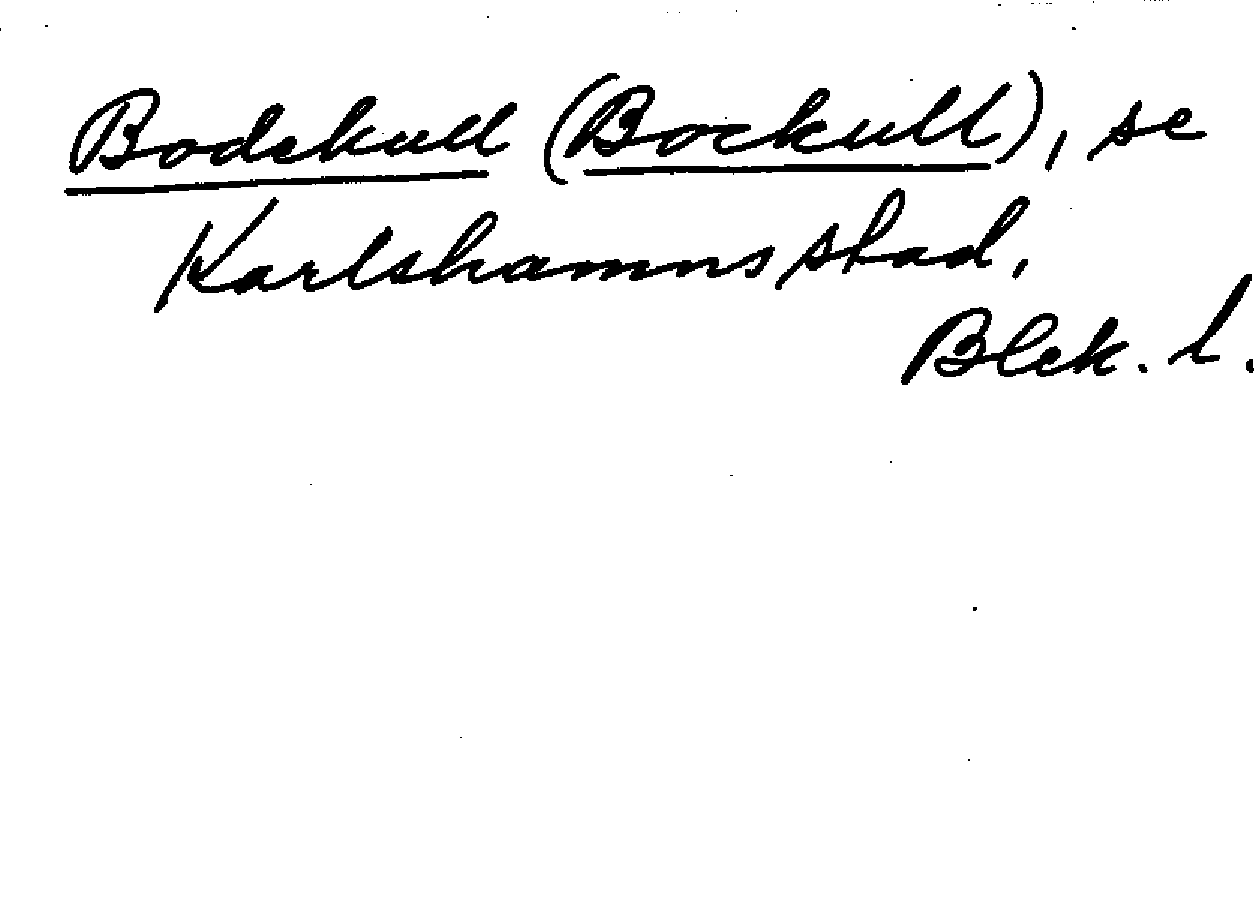 Bodekull (Bockull), se
Karlshamns stad,
Blek. l.